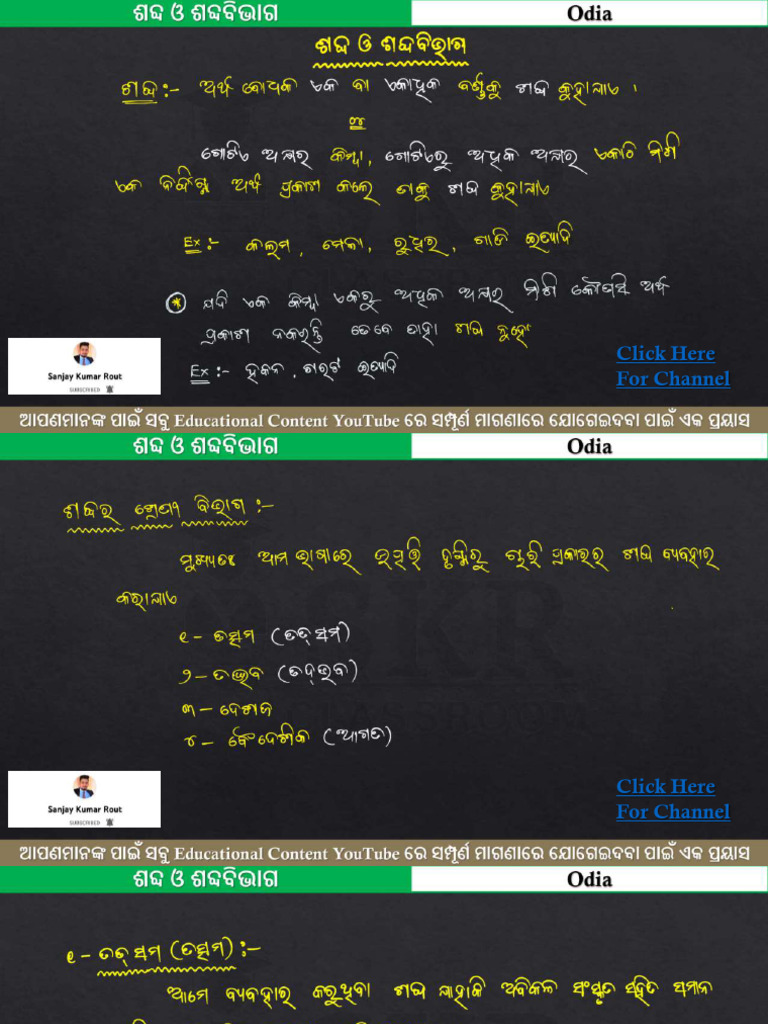 ଶବ୍ଦ ଓ ଶବ୍ଦବିଭାଗ Odia
ଶବ୍ଦ ଓ ଶବ୍ଦବିଭାଗ
ଶବ୍ଦ :- ଅର୍ଥ ବୋଧକ ଏକ ବା ଏକାଧିକ ବର୍ଣ୍ଣକୁ ଶବ୍ଦ କୁହାଯାଏ ।
ଗୋଟିଏ ଅକ୍ଷର କିମ୍ବା, ଗୋଟିଏରୁ ଅଧିକ ଅକ୍ଷର ଏକାଠି ମିଶି
ଏକ ନିର୍ଦ୍ଦିଷ୍ଟ ଅର୍ଥ ପ୍ରକାଶ କଲେ ତାକୁ ଶବ୍ଦ କୁହାଯାଏ
Ex :- କଲମ, ମେଳା, ରୁଧିର, ଗାଈ ଇତ୍ୟାଦି
* ଯଦି ଏକ କିମ୍ବା ଏକରୁ ଅଧିକ ଅକ୍ଷର ମିଶି କୌଣସି ଅର୍ଥ
ପ୍ରକାଶ ନକରନ୍ତି ତେବେ ତାହା ଶବ୍ଦ ନୁହେଁ
Ex :- ହକନ, ଶରଟ ଇତ୍ୟାଦି
Sanjay Kumar Rout
SUBSCRIBED
Click Here
For Channel
ଆପଣମାନଙ୍କ ପାଇଁ ସବୁ Educational Content YouTube ରେ ସମ୍ପୂର୍ଣ ମାଗଣାରେ ଯୋଗେଇଦବା ପାଇଁ ଏକ ପ୍ରୟାସ
ଶବ୍ଦ ଓ ଶବ୍ଦବିଭାଗ Odia
ଶବ୍ଦର ଶ୍ରେଣୀ ବିଭାଗ :-
ମୁଖ୍ୟତଃ ଆମ ଭାଷାରେ ଉତ୍ପତ୍ତି ଦୃଷ୍ଟିରୁ ଚାରି ପ୍ରକାରର ଶବ୍ଦ ବ୍ୟବହାର
କରାଯାଏ
୧ - ତତ୍ସମ (ତତ୍ ସମ)
୨ - ତଦ୍ଭବ (ତଦ୍ ଭବ)
୩ - ଦେଶଜ
୪ - ବୈଦେଶିକ (ଆଗତ)
Sanjay Kumar Rout
SUBSCRIBED
Click Here
For Channel
ଆପଣମାନଙ୍କ ପାଇଁ ସବୁ Educational Content YouTube ରେ ସମ୍ପୂର୍ଣ ମାଗଣାରେ ଯୋଗେଇଦବା ପାଇଁ ଏକ ପ୍ରୟାସ
ଶବ୍ଦ ଓ ଶବ୍ଦବିଭାଗ Odia
୧ - ତତ୍ ସମ (ତତ୍ସମ) :-
ଆମେ ବ୍ୟବହାର କରୁଥିବା ଶବ୍ଦ ଯାହାକି ଅବିକଳ ସଂସ୍କୃତ ସହିତ ସମାନ